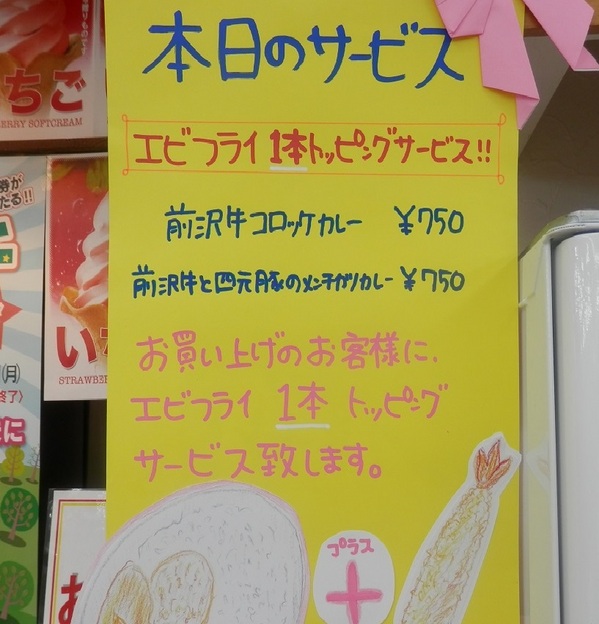 本日のサービス
エビフライ1本トッピングサービス!!
前沢牛コロッケカレー ¥750
前沢牛と四元豚のメンチカツカレー ¥750
お買い上げのお客様に、
エビフライ 1本 トッピング
サービス致します。
プラス
+
ちご
ERRY SOFTCREAM
券が
たる!!
(月)
終了〉
に
い
STRAWBE
お